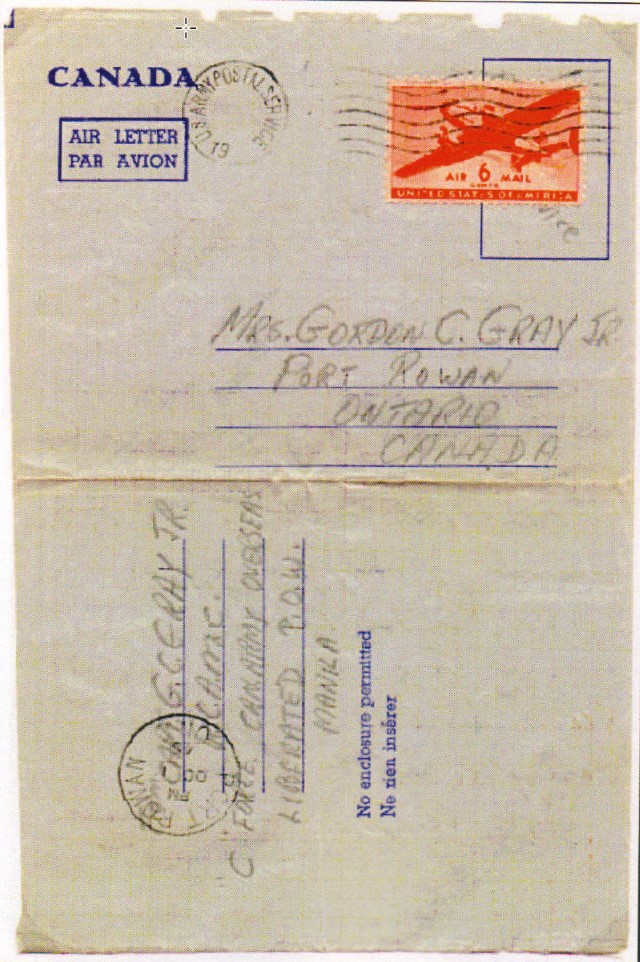 CANADA
AIR LETTER
PAR AVION
U.S. ARMY POSTAL SERVICE
19
AIR 6 MAIL
CENTS
UNITED STATES OF AMERICA
MRS. GORDON C. GRAY JR.
PORT ROWAN
ONTARIO
CANADA
G.C. GRAY JR.
R.C.A.M.C.
C FORCE CAN ARMY OVERSEAS
LIBERATED P.O.W.
MANILA.
No enclosure permitted
Ne rien insérer
ROWAN
OC